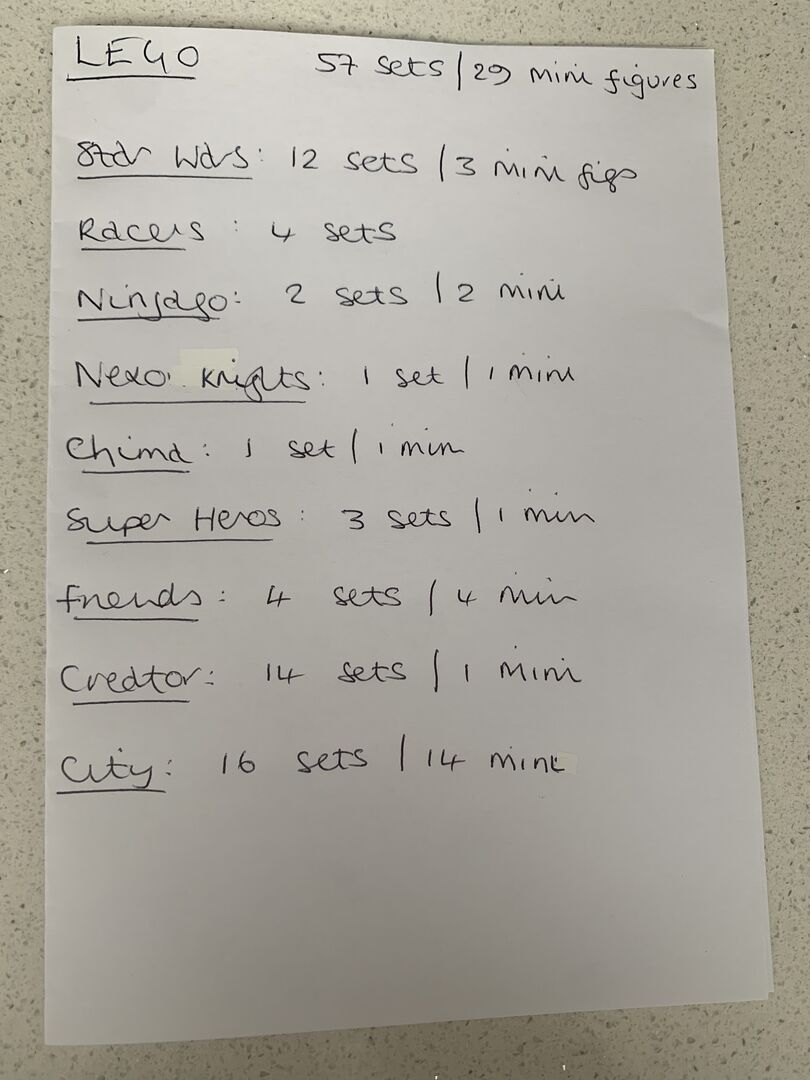 LEGO 57 sets | 29 mini figures
Star Wars: 12 sets | 3 mini figs
Racers : 4 sets
Ninjago: 2 sets | 2 mini
Nexo Knights: 1 set | 1 mini
Chima: 1 set | 1 min
Super Heros : 3 sets | 1 min
friends: 4 sets | 4 min
Creator: 14 sets | 1 mini
City: 16 sets | 14 mini